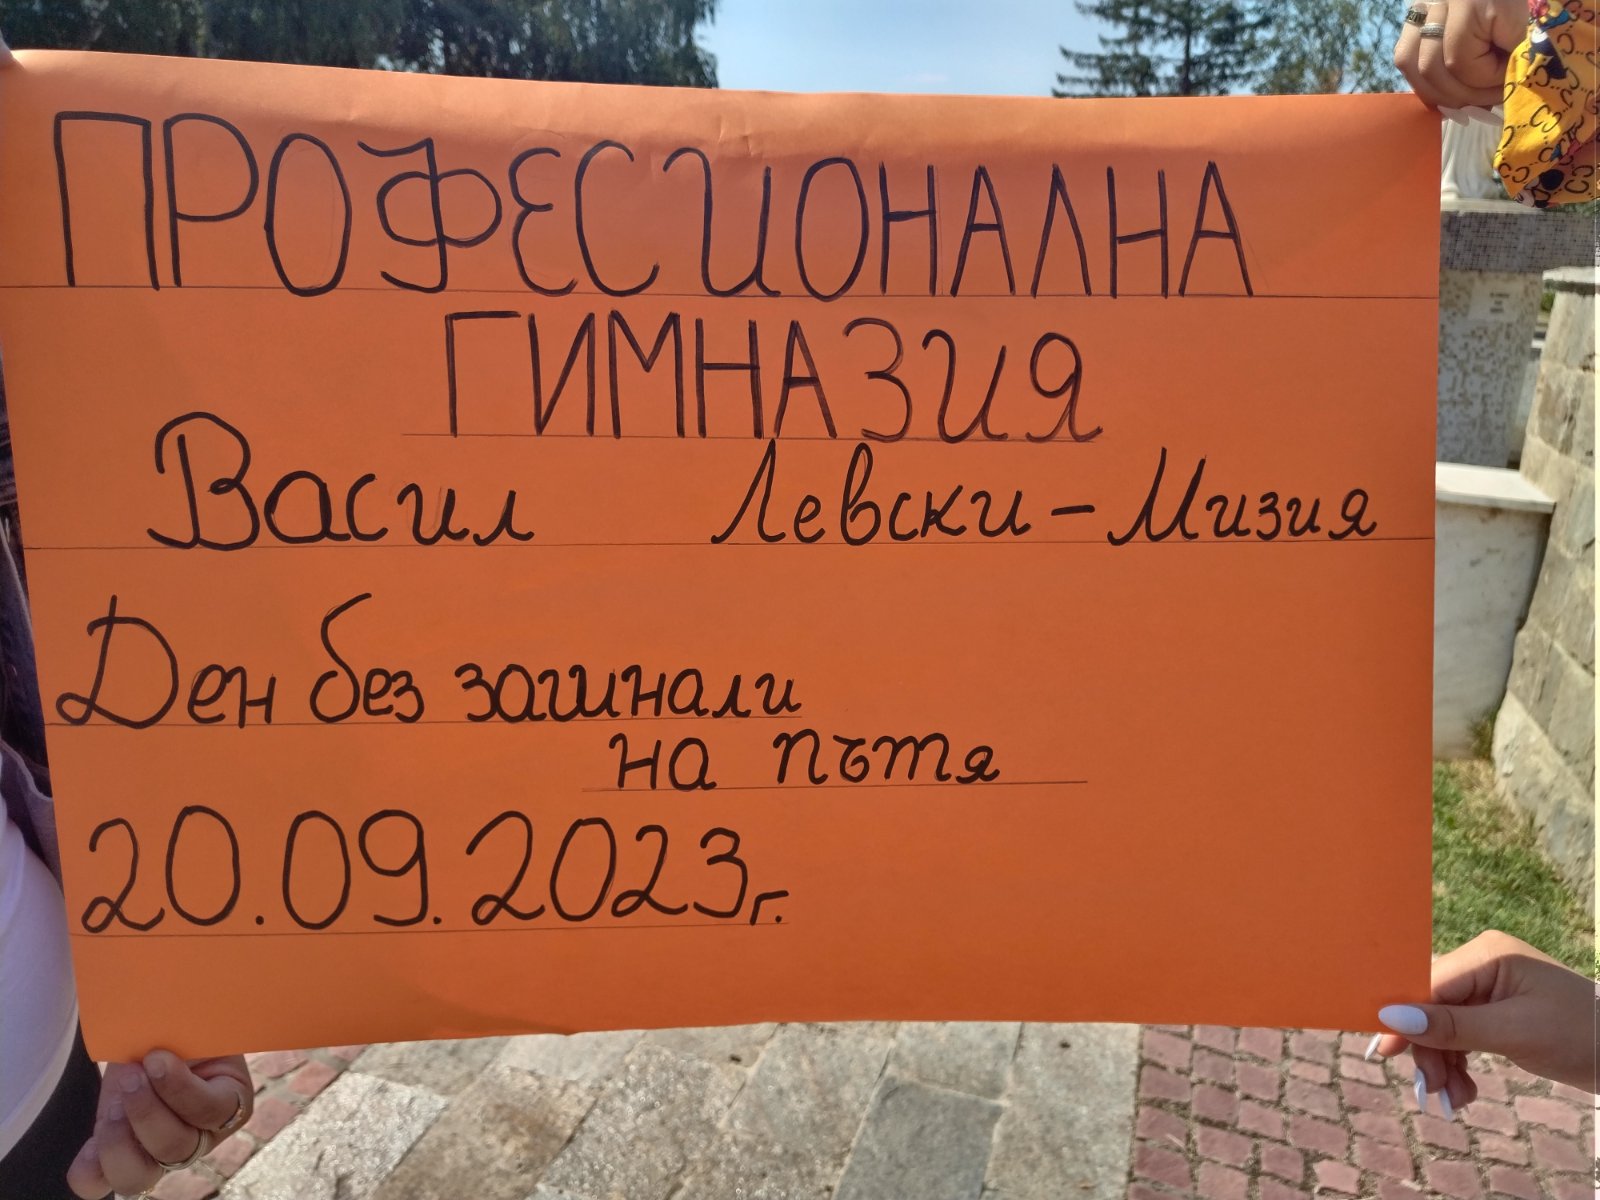 ПРОФЕСИОНАЛНА
ГИМНАЗИЯ
Васил Левски - Мизия
Ден без загинали
на пътя
20.09.2023г.